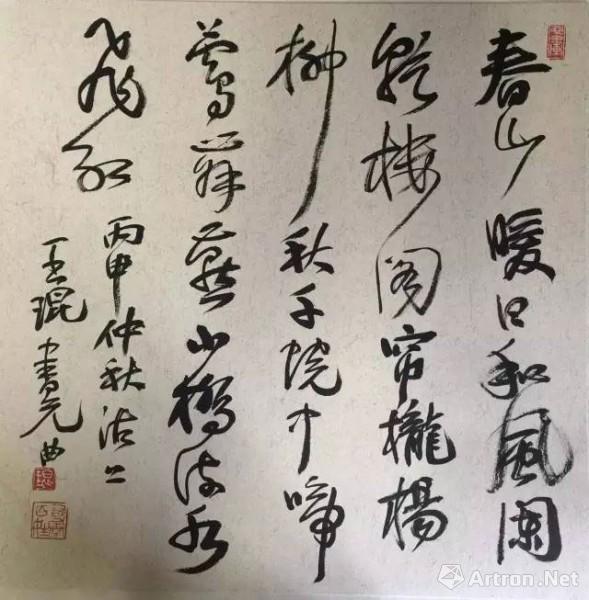 春山暖日和風闌
幹樓阁帘櫳楊
柳秋千院中啼
鶯舞燕小橋流水
飛红
丙申仲秋沽上
王琨書元曲
Artron.Net